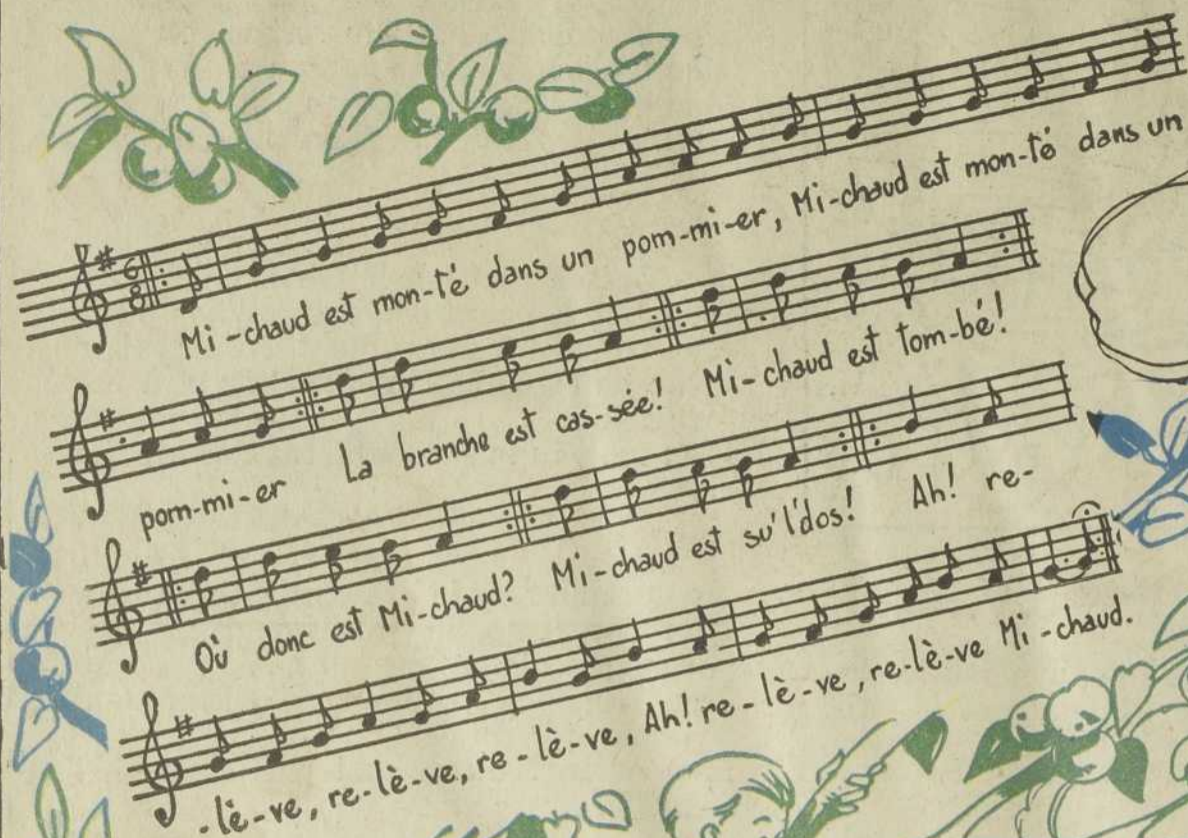 6
8
Mi-chaud est mon-té dans un pom-mi-er, Mi-chaud est mon-té dans un
pom-mi-er La branche est cas-sée! Mi-chaud est tom-bé!
Où donc est Mi-chaud? Mi-chaud est su'l'dos! Ah! re-
-lè-ve, re-lè-ve, re-lè-ve, Ah! re-lè-ve, re-lè-ve Mi-chaud.